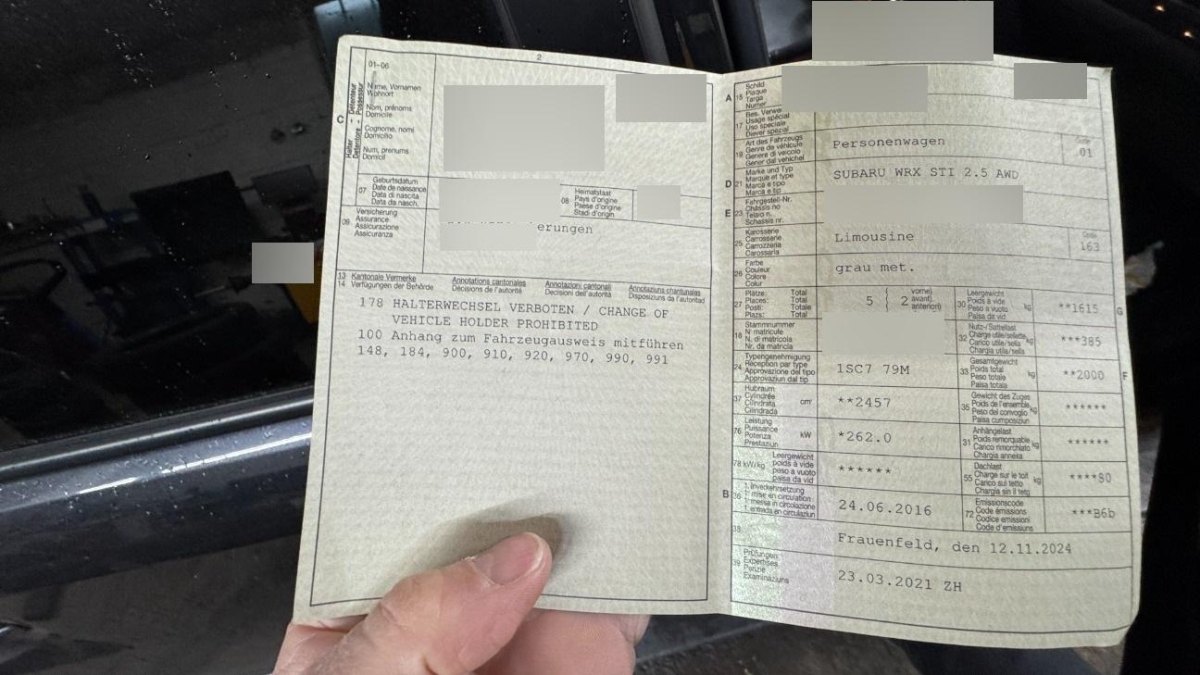 2
01-06
Name, Vornamen
Wohnort
Nom, prénoms
Domicile
Cognome, nomi
Domicilio
Num, prenums
Domicil
C
Halter – Détenteur
Detentore – Possessur
07
Geburtsdatum
Date de naissance
Data di nascita
Data da nasch.
08
Heimatstaat
Pays d'origine
Paese d'origine
Stadi d'origin
09
Versicherung
Assurance
Assicurazione
Assicuranza
erungen
13 Kantonale Vermerke
14 Verfügungen der Behörde
Annotations cantonales
Décisions de l'autorité
Annotazioni cantonali
Decisioni dell'autorità
Annotaziuns chantunalas
Disposiziuns da l'autoritad
178 HALTERWECHSEL VERBOTEN / CHANGE OF
VEHICLE HOLDER PROHIBITED
100 Anhang zum Fahrzeugausweis mitführen
148, 184, 900, 910, 920, 970, 990, 991
A 15
Schild
Plaque
Targa
Numer
17
Bes. Verwe
Usage spécial
Uso speciale
Diever spezial
19
Art des Fahrzeugs
Genre de véhicule
Genere di veicolo
Gener dal vehichel
Personenwagen
Code
01
D 21
Marke und Typ
Marque et type
Marca e tipo
Marca e tip
SUBARU WRX STI 2.5 AWD
E 23
Fahrgestell-Nr.
Châssis no
Telaio n.
Schassis nr.
25
Karosserie
Carrosserie
Carrozzeria
Carossaria
Limousine
Code
163
26
Farbe
Couleur
Colore
Colur
grau met.
27
Plätze: Total
Places: Total
Posti: Totale
Plazs: Total
5 { 2
vorne)
avant)
anteriori)
30
Leergewicht
Poids à vide
Peso a vuoto
Paisa da vid
kg
**1615
G
18
Stammnummer
N° matricule
N. di matricola
Nr. da matricla
32
Nutz-/Sattellast
Charge utile/sellette
Carico utile/sella
Chargia utila/sella
kg
***385
24
Typengenehmigung
Réception par type
Approvazione del tipo
Approvaziun dal tip
1SC7 79M
33
Gesamtgewicht
Poids total
Peso totale
Paisa totala
kg
**2000
F
37
Hubraum
Cylindrée
Cilindrata
Cilindrada
cm³
**2457
35
Gewicht des Zuges
Poids de l'ensemble
Peso del convoglio
Paisa cumposiziun
kg
******
76
Leistung
Puissance
Potenza
Prestaziun
kW
*262.0
31
Anhängelast
Poids remorquable
Carico rimorchiato
Chargia annexa
kg
******
78 kW/kg
Leergewicht
poids à vide
peso a vuoto
paisa da vid
******
55
Dachlast
Charge sur le toit
Carico sul tetto
Chargia sin il tetg
kg
****80
B 36
1. Inverkehrsetzung
1re mise en circulation
1a messa in circolazione
1. entrada en circulaziun
24.06.2016
72
Emissionscode
Code émissions
Codice emissioni
Code d'emissiuns
***B6b
38
Frauenfeld, den 12.11.2024
39
Prüfungen
Expertises
Perizie
Examinaziuns
23.03.2021 ZH